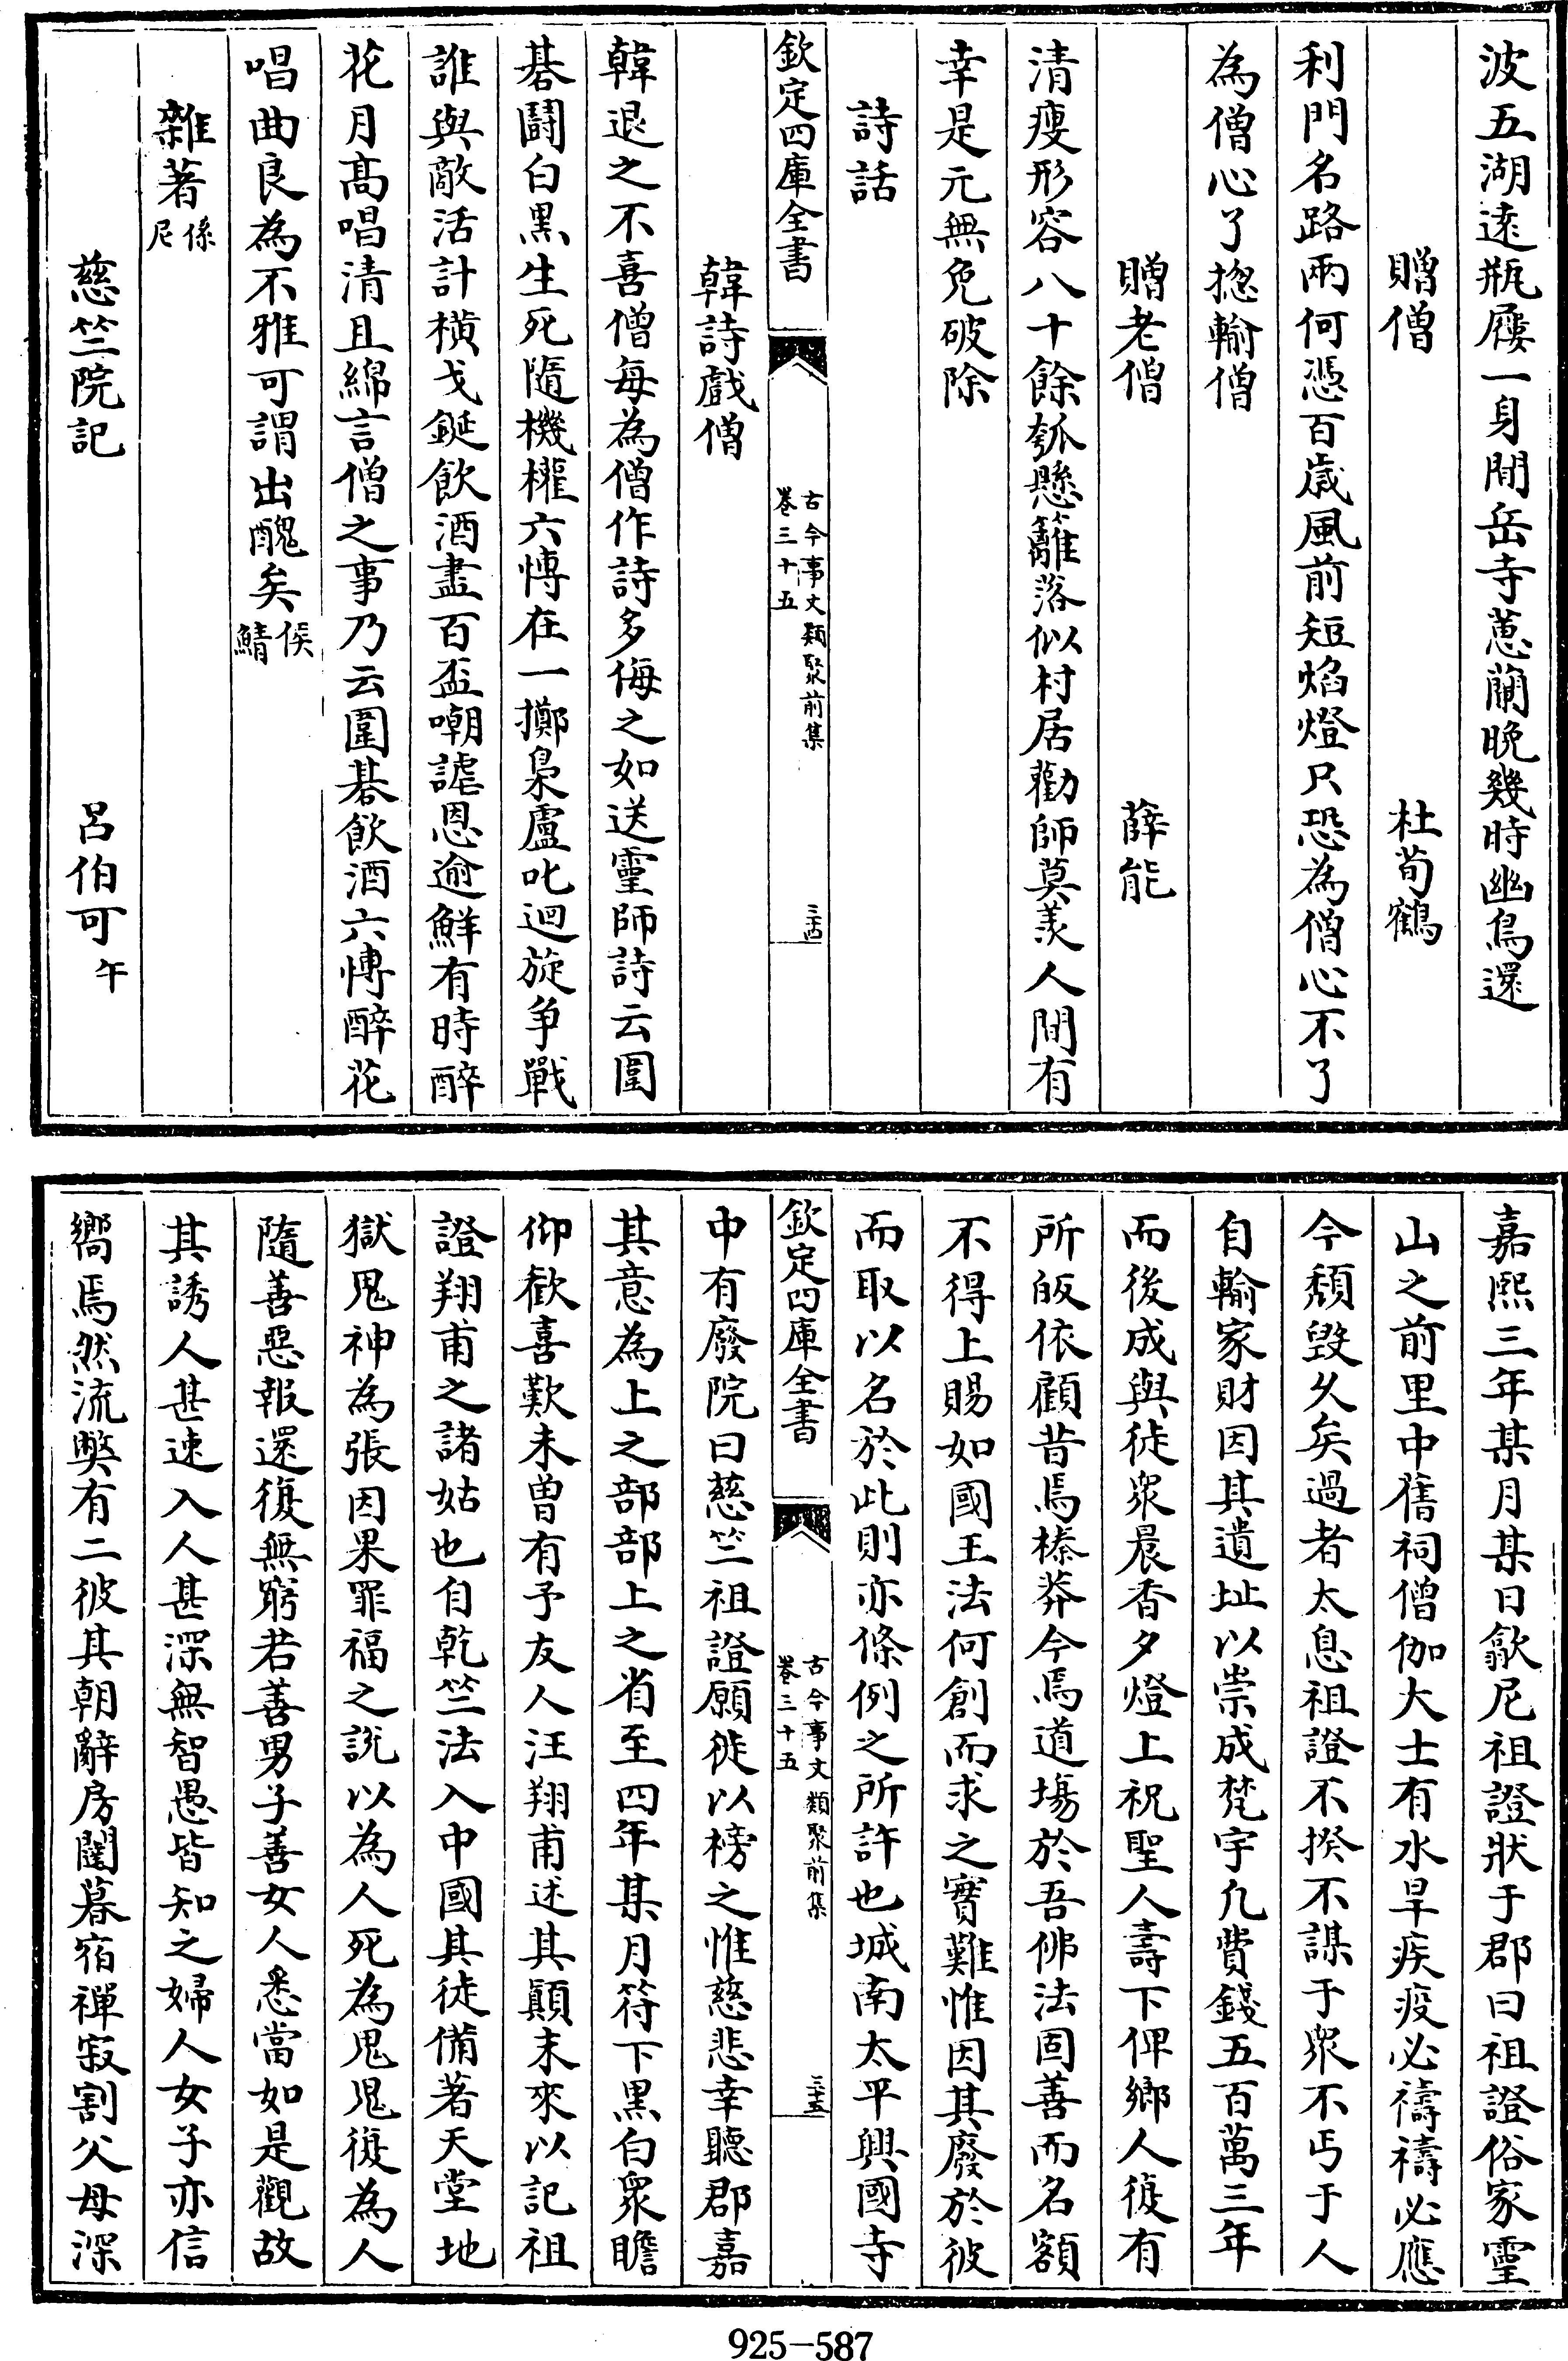 波五湖遠瓶屨一身閒岳寺蕙蘭晚幾時幽鳥還
贈僧 杜荀鶴
利門名路兩何憑百歲風前短焰燈只恐為僧心不了
為僧心了揔輸僧
贈老僧 薛能
清瘦形容八十餘瓠懸籬落似村居勸師莫羨人間有
幸是元無免破除
詩話
欽定四庫全書 古今事文類聚前集 卷三十五 三十四
韓詩戲僧
韓退之不喜僧每為僧作詩多侮之如送靈師詩云圍
碁鬪白黒生死隨機權六愽在一擲梟盧叱迴旋争戰
誰與敵活計橫戈鋋飲酒盡百盃嘲謔恩逾鮮有時醉
花月髙唱清且綿言僧之事乃云圍碁飲酒六愽醉花
唱曲良為不雅可謂出醜矣侯鯖
雜著係尼
慈竺院記 呂伯可午
嘉熙三年某月某日歙尼祖證狀于郡曰祖證俗家靈
山之前里中舊祠僧伽大士有水旱疾疫必禱禱必應
今頽毀乆矣過者太息祖證不揆不謀于衆不丐于人
自輸家財因其遺址以崇成梵宇凢費錢五百萬三年
而後成與徒衆晨香夕燈上祝聖人壽下俾鄉人復有
所皈依顧昔焉榛莽今焉道塲於吾佛法固善而名額
不得上賜如國王法何創而求之實難惟因其廢於彼
而取以名於此則亦條例之所許也城南太平興國寺
欽定四庫全書 古今事文類聚前集 卷三十五 三十五
中有廢院曰慈竺祖證願徙以榜之惟慈悲幸聽郡嘉
其意為上之部部上之省至四年某月符下黒白衆瞻
仰歡喜歎未曽有予友人汪翔甫述其顛末來以記祖
證翔甫之諸姑也自乾竺法入中國其徒備著天堂地
獄鬼神為張因果罪福之說以為人死為鬼鬼復為人
隨善惡報還復無窮若善男子善女人悉當如是觀故
其誘人甚速入人甚深無智愚皆知之婦人女子亦信
嚮焉然流弊有二彼其朝辭房闥暮宿禪寂割父母深
925-587